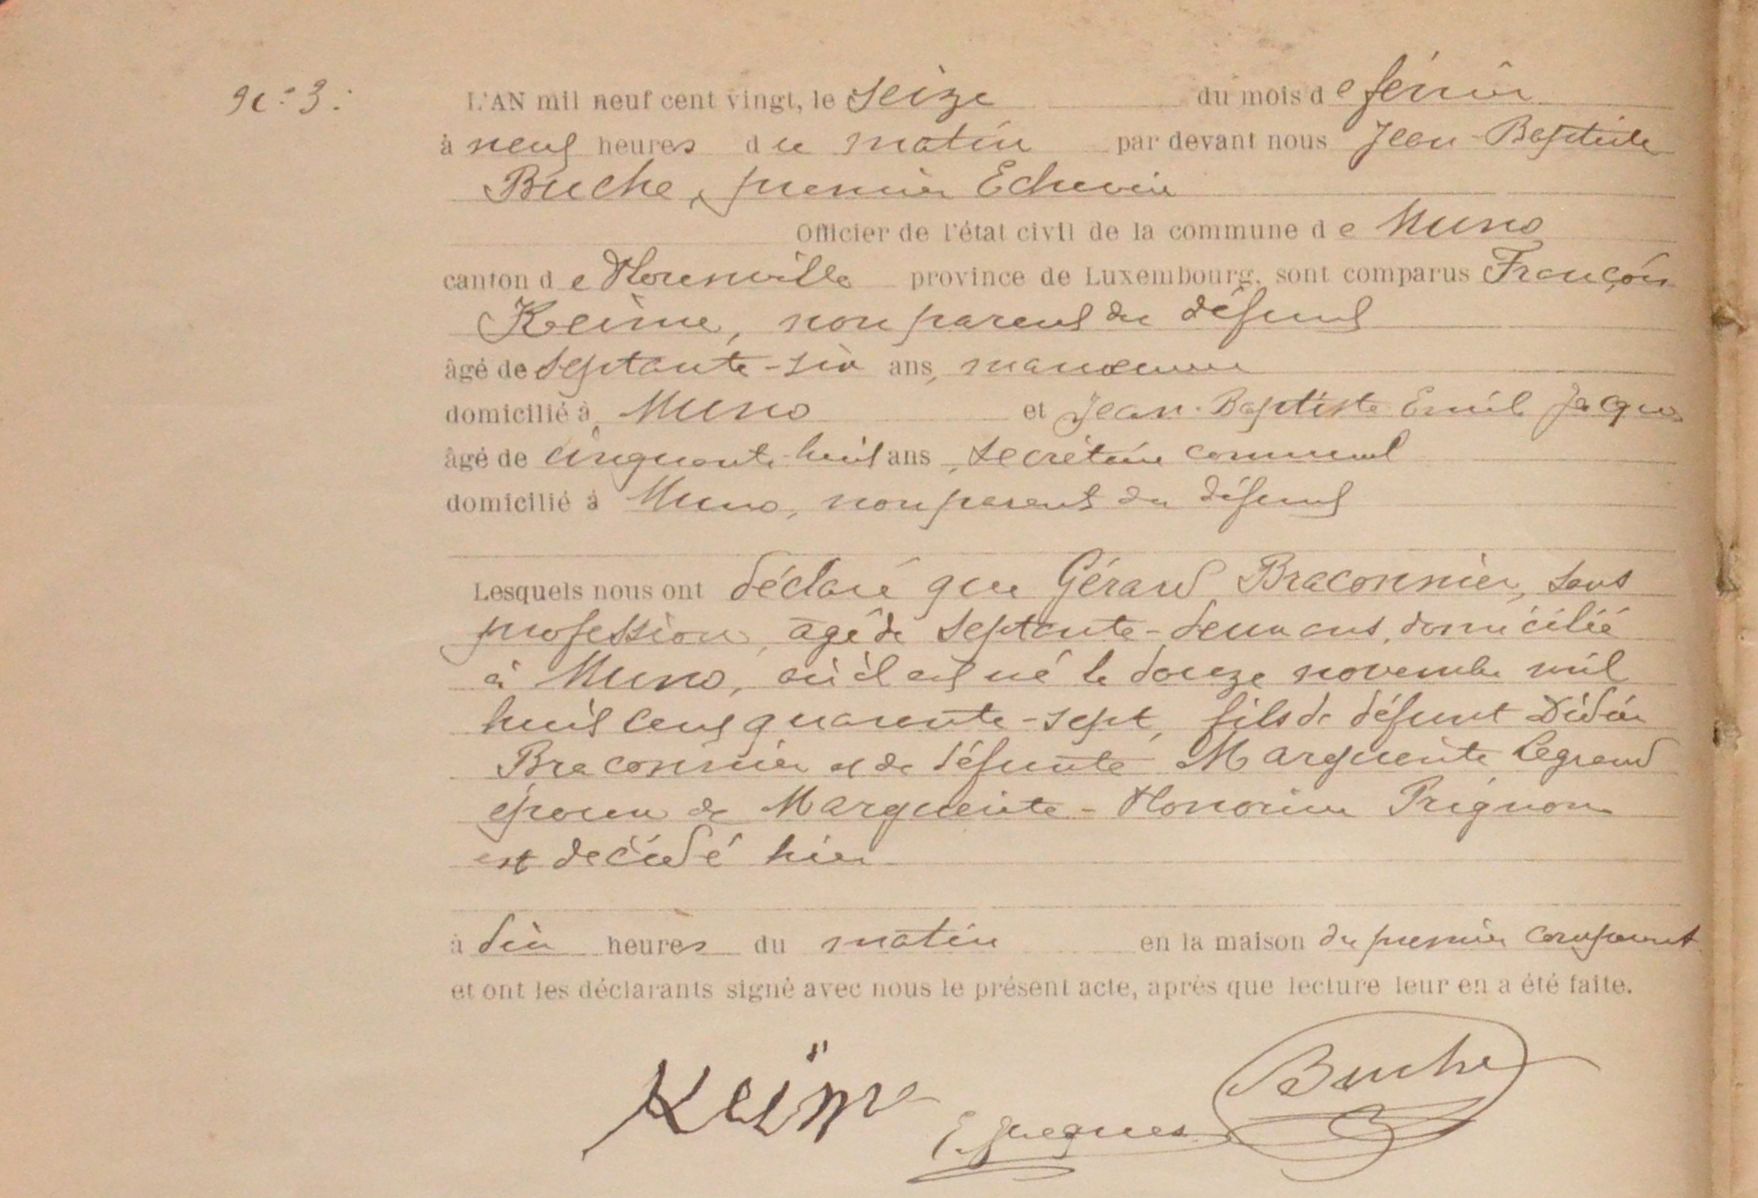 N° 3.
L'AN mil neuf cent vingt, le seize du mois de février
à neuf heures du matin par devant nous Jean-Baptiste
Buche, premier Echevin
Officier de l'état civil de la commune de Muno
canton de Florenville province de Luxembourg, sont comparus François
Keïme, non parent du défunt
âgé de septante-six ans, manœuvre
domicilié à Muno et Jean-Baptiste Emile Jacques
âgé de cinquante-huit ans, secrétaire communal
domicilié à Muno, non parent du défunt
Lesquels nous ont déclaré que Gérard Braconnier, sans
profession, âgé de septante-deux ans, domicilié
à Muno, où il est né le douze novembre mil
huit cent quarante-sept, fils de défunt Didier
Braconnier et de défunte Marguerite Legrand
époux de Marguerite-Honorine Prignon
est décédé hier
à dix heures du matin en la maison du premier comparant
et ont les déclarants signé avec nous le présent acte, après que lecture leur en a été faite.
Keïme E. Jacques Buche